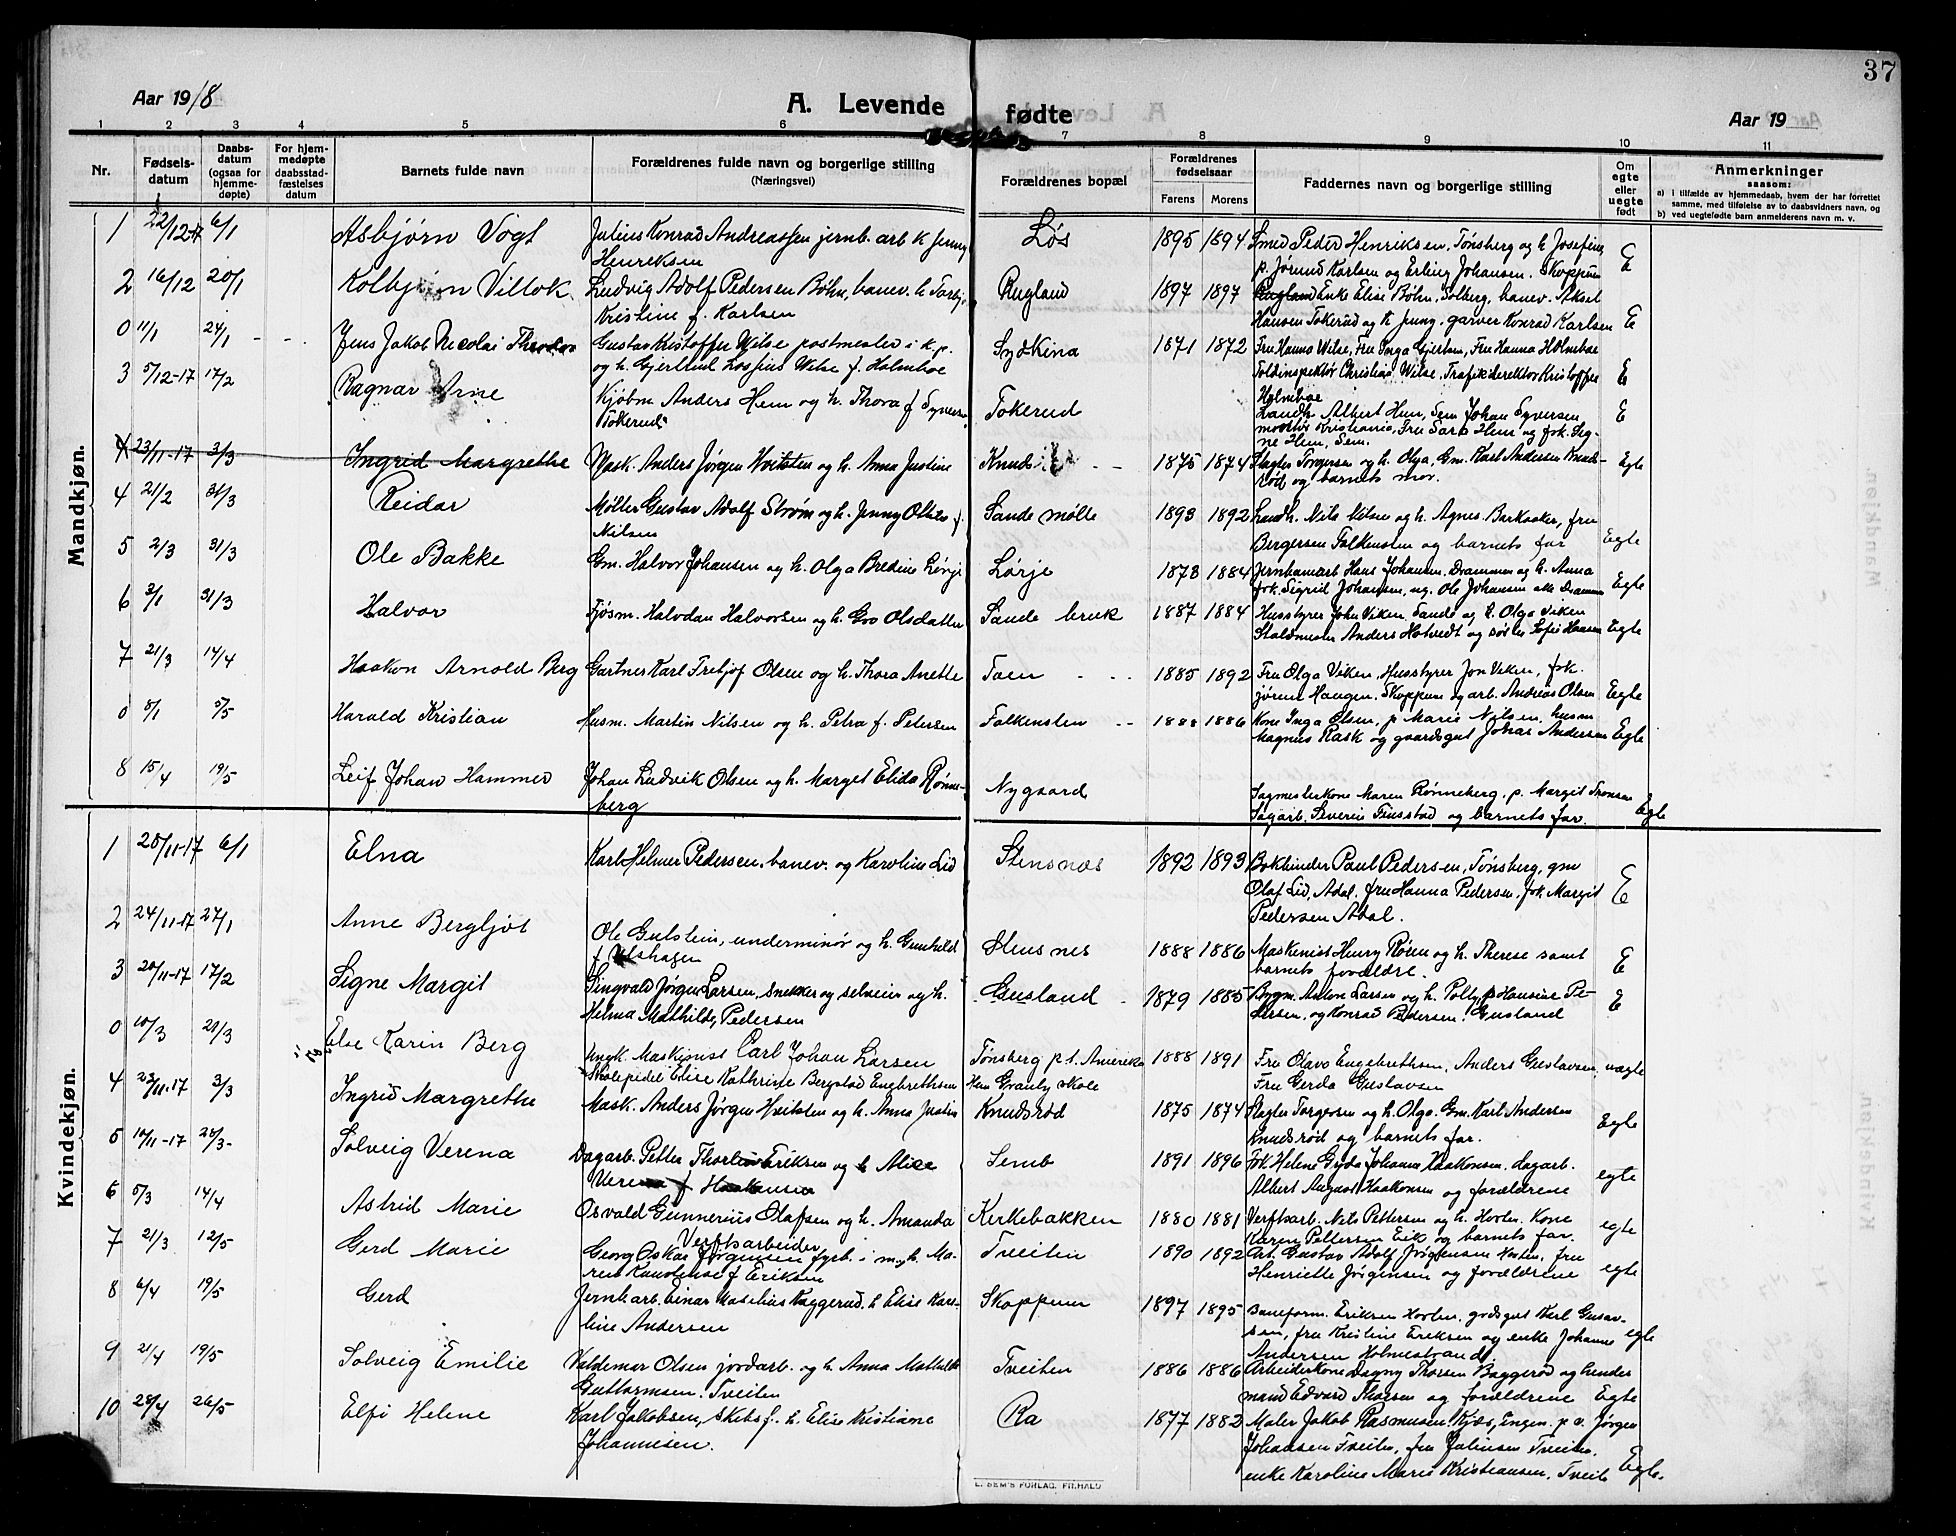 37
Aar 1918
A. Levende fødte
Aar 19
1 2 3 4 5 6 7 8 9 10 11
Nr.
Fødsels-
datum
Daabs-
datum
(ogsaa for
hjemme-
døpte)
For hjem-
medøpte
daabsstad-
fæstelses
datum
Barnets fulde navn
Forældrenes fulde navn og borgerlige stilling
(Næringsvei)
Forældrenes bopæl
Forældrenes
fødselsaar
Farens Morens
Faddernes navn og borgerlige stilling
Om
egte
eller
uegte
født
Anmerkninger
saasom:
a) I tilfælde av hjemmedaab, hvem der har forrettet
samme, med tilføielse av to daabsvidners navn, og
b) ved uegtefødte barn anmelderens navn m. v.
Mandkjøn.
1 22/12-17 6/1 Asbjørn Vogt Julius Konrad Andreassen jernb. arb. h Jenny Løs 1895 1894 Smed Peder Henriksen, Tønsberg og h. Josefine, E
Henreksen p. Jørund Karlsen og Erling Johansen. Skoppum
2 16/12 20/1 Kolbjørn Ludvig Adolf Pedersen Bøhn, banev. h Rugland 1897 1897 Enke Elise Bøhn, Solberg, banev. Aksel
Kristine f. Karlsen Hansen Tokerud og h Jenny. garver Konrad Karlsen E
0 11/1 24/1 Jens Jakob Nicolai Gustav Kristoffer Wilse postmester i k.p. 1871 1872 Fru Hanna Wilse, Fru Inga Gjertsen, Fru Hanna Holmboe
og h. Wilse f. Holmboe Toldinspektør Christian Wilse, Trafikdirektør Kristoffer E
Holmboe
3 5/12-17 17/2 Ragnar Arne Kjøbm. Anders Hem og h. Thora f Syversen Tokerud Landh. Albert Hem, Sem Johan Syversen E
Tokerud Kristiania, Fru Sara Hem og frk. Sig-
ne Hem, Sem.
4 23/11-17 3/3 Ingrid Margrethe Mask. Anders Jørgen Hvitsten og h. Anna Justine 1875 1874 Slagter Torgersen og h. Olga, Gm. Karl Andersen Knuds- Egte
rød og barnets mor.
4 21/2 31/3 Reidar Møller Gustav Adolf Strøm og h. Jenny f. Sande mølle 1893 1892 Landh. Nils Nilsen og h. Agnes. Barkaaker, fru
Nilsen Bergersen Falkensten og barnets far Egte
5 2/3 31/3 Ole Bakke Gm. Halvor Johansen og h. Olga Bredine Lørje Lørje 1873 1884 Hans Johansen. Drammen og h. Anna
frk. Sigrid Johansen, ug. Ole Johansen alle Drammen Egte
6 3/1 31/3 Halvor Fjøsm. Halvdan Halvorsen og h. Gro Olsdatter Sande bruk 1887 1884 Husstyrer John Viken Sande og h. Olga Viken
Staldmester Anders Hotvedt og søster Sofie Hansen Egte
7 21/3 14/4 Haakon Arnold Berg Gartner Karl Fretjof Olsen og h. Thora Anette 1885 1892 Fru Olga Viken, Husstyrer Jon Viken, frk.
Haugen, Skoppum og arb. Andreas Olsen Egte
0 8/1 5/5 Harald Kristian Husm. Martin Nilsen og h. Petra f. Petersen Falkensten 1888 1886 Kone Inga Olsen, p Marie Nilsen, husm
Magnus Rask og gaardsgut Johan Andersen Egte
8 15/4 19/5 Leif Johan Hammer Johan Ludvik Olsen og h. Marget Elida Rønne- Nygaard Sagmesterkone Maren Rønneberg. p. Margit Tronsen
berg Sagarb. Severin Finsstad og barnets far Egte
Kvindekjøn.
1 28/11-17 6/1 Elna Karl Helmer Pedersen, banev. og Karoline Lid Stensnæs 1892 1893 Bokbinder Paul Pedersen, Tønsberg, gm
Olaf Lid, Adal. fru Hanna Pedersen, frk. Margit E
Pedersen Adal.
2 24/11-17 27/1 Anne Bergljot Ole Gulstein, underminør og h. Gunhild Stensnes 1888 1886 Maskenist Henry Rosen og h. Therese samt
barnets forældre. E
3 20/11-17 17/2 Signe Margit Singvald Jørgen Larsen, snekker og selveier og h. Gusland 1879 1885 Bygm. Anton Larsen og h. Polly, p Hansine Pe- E
Helma Mathilde Pedersen dersen, og Konrad Pedersen. Gusland
0 10/3 28/3 Else Karin Berg Ungk. Maskinist Carl Johan Larsen Tønsberg p.t. Amerika 1888 1891 Fru Olava Engebrethsen, Anders Gustavsen, uægte
Elise Kathrine Bergstad Engebrethsen Hem Granly skole Fru Gerda Gustavsen
4 23/11-17 3/3 Ingrid Margrethe Mask. Anders Jørgen Hvitsten og h. Anna Justin Knudsrød 1875 1874 Slagter Torgersen og h. Olga. Gm. Karl Andersen
Knudsrød og barnets far. Egte
5 10/11-17 28/3 Solveig Verena Dagarb. Petter Eriksen og h Alice Semb 1891 1896 Frk Helene Gyda Johanne Haakonsen, dagarb.
Verena f Haakonsen Albert August Haakonsen og forældrene egte
6 5/3 14/4 Astrid Marie Osvald Gunnerius Olafsen og h. Amanda Kirkebakken 1880 1881 Verftsarb. Nils Pettersen og h. Horten. Kone
Verftsarbeider Karen Pettersen Eik og barnets far. egte
7 21/3 12/5 Gerd Marie Georg Oskar Jørgensen fyrb. i m. h. Ma- Tveiten 1890 1892 Arb. Gustav Adolf Jørgensen Horten, fru
ren f Eriksen Henriette Jørgensen og forældrene egte
8 6/4 19/5 Gerd Jernb.arb. Einar Kaggerud. h Elise Karo- Skoppum 1897 1895 Baneform. Eriksen Horten, godsgut Karl Gustav-
line Andersen sen, fru Kristine Eriksen og enke Johanne egte
Andersen Holmestrand.
9 21/4 19/5 Solveig Emilie Valdemar Olsen jordarb. og h. Anna Mathilde Tveiten 1886 1886 Arbeiderkone Dagny Thorsen Baggerød og hendes
Guttormsen. Tveiten mand Edvard Thorsen og forældrene Egte
10 28/4 26/5 Elfi Helene Karl Jakobsen, skibsf. h Elise Kristiane Ra 1877 1882 Maler Jakob Rasmussen, p a. Jørgen
Johannesen. Johansen Tveiten, fru Julinsen Tveiten.
enke Karoline Marie Kristiansen, Tveite Egte.
E. SEM'S FORLAG, FR.HALD